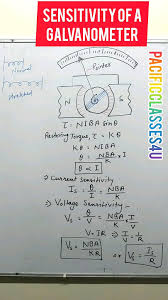 SENSITIVITY OF A
GALVANOMETER
PACIFICCLASSES4U
Normal
Pointer
N
S
τ = NIBA Sinθ
Restoring Torque, τ = Kθ
Kθ = NIBA
θ = NBA/K . I
θ ∝ I
⇒ Current Sensitivity
Is = θ/I = NBA/K
⇒ Voltage Sensitivity -
Vs = θ/V = NBA/K . I/V
V = IR ⇒ I/V = 1/R
Vs = NBA/KR or Vs = Is/R